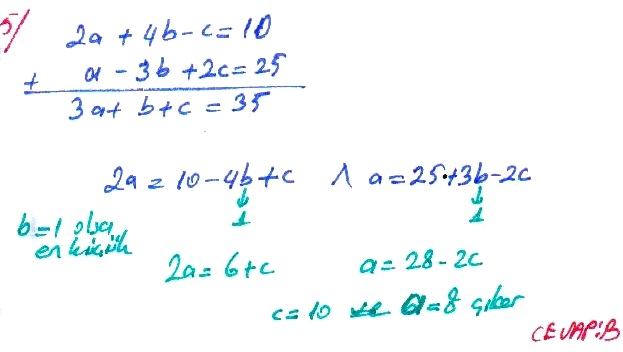 5/ 2a + 4b - c = 10
+ a - 3b + 2c = 25
3a + b + c = 35
2a = 10 - 4b + c ∧ a = 25 + 3b - 2c
↓ ↓
1 1
b = 1 olsa
en küçük
2a = 6 + c a = 28 - 2c
c = 10 ve a = 8 çıkar
CEVAP: B